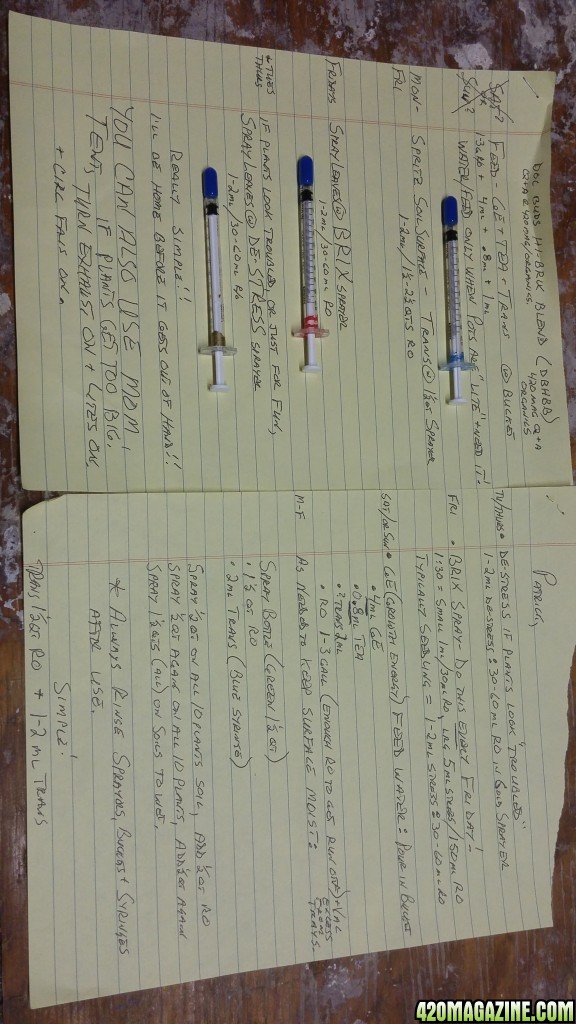 DOC BUDS HI-BRIX BLEND (DBHBB)
Q+A @ 420 MAG/ORGANICS. 420 MAG Q+A
ORGANICS
SAT? OR SUN? FEED - GE + TEA - TRANS @ BUCKET
1-3 GALS + 4ML + .8ML + 1ML
WATER/FEED ONLY WHEN POTS ARE "LITE" + NEED IT!
MON-FRI SPRITZ SOIL SURFACE TRANS @ 1½QT SPRAYER
1-2ML / 1½-2½ QTS RO
FRIDAYS SPRAY LEAVES @ BRIX SPRAYER
1-2ML / 30-60ML RO
+ TUES THURS IF PLANTS LOOK TROUBLED OR JUST FOR FUN,
SPRAY LEAVES @ DE-STRESS SPRAYER
1-2ML / 30-60ML RO
REALLY SIMPLE!!
I'LL BE HOME BEFORE IT GETS OUT OF HAND!!
YOU CAN ALSO USE MOM,
IF PLANTS GET TOO BIG.
TENT, TURN EXHAUST ON + LITES ON.
+ CIRC FANS ON.
PATRICK,
TU/THURS • DE-STRESS IF PLANTS LOOK "TROUBLED"
1-2ML DE-STRESS : 30-60ML RO IN GOLD SPRAYER
FRI • BRIX SPRAY - DO THIS EVERY FRIDAY -!
1:30 = SMALL 1ML/30ML RO, LRG 5ML STRESS/150ML RO
TYPICALLY SEEDLING = 1-2ML STRESS : 30-60ML RO
SAT/OR SUN • GE (GROWTH ENERGY) FEED WATER : POUR IN BUCKET
• 4ML GE
• 0.8ML TEA
• ? TRANS 2ML
• RO 1-3 GALL (ENOUGH RO TO GET RUN OFF) + VAC EXCESS FROM TRAYS.
M-F AS NEEDED TO KEEP SURFACE MOIST :
SPRAY BOTTLE (GREEN 1½ QT)
• 1½ QT RO
• 2ML TRANS (BLUE SYRINGE)
SPRAY ½ QT ON ALL 10 PLANTS SOIL, ADD ½ QT RO
SPRAY ½ QT AGAIN ON ALL 10 PLANTS, ADD ½ QT AGAIN
SPRAY 1½ QTS (ALL) ON SOILS TO WET.
* ALWAYS RINSE SPRAYERS, BUCKETS + SYRINGES
AFTER USE.
SIMPLE!
TRANS 1½ QT RO + 1-2 ML TRANS
420MAGAZINE.COM